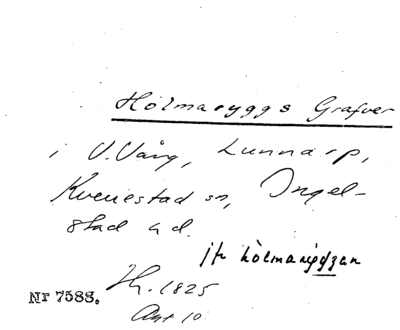 Holmaryggs Grafver
i V. Vång, Lunnarp,
Kverrestad sn, Ingel-
stad hd.
jfr holmaryggen
Nr 7588.
1825